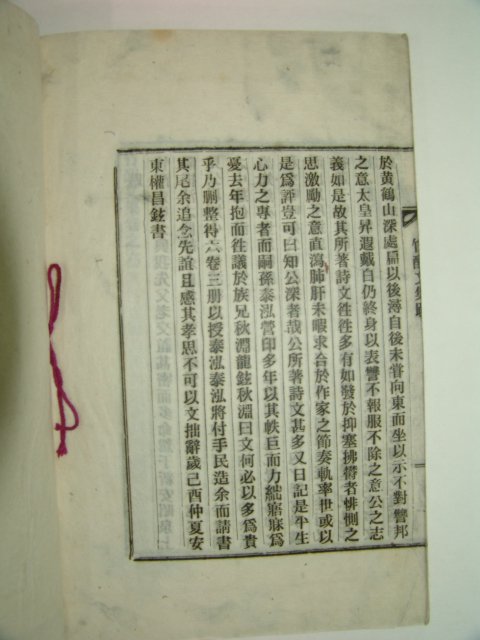 於黃鶴山深處扁以後溥自後未甞向東而坐以示不對讐邦
之意太皇昇遐戴白仍終身以表讐不報服不除之意公之志
義如是故其所著詩文徃徃多有如發於抑塞拂欝者悱惻之
思激勵之意直瀉肺肝未暇求合於作家之節奏軌率世或以
是爲評豈可曰知公深者哉公所著詩文甚多又日記是平生
心力之專者而嗣孫泰泓營印多年以其帙巨而力絀寤寐爲
憂去年抱而徃議於族兄秋淵龍鉉秋淵曰文何必以多爲貴
乎乃刪整得六卷三册以授泰泓泰泓將付手民造余而請書
其尾余追念先誼且感其孝思不可以文拙辭歲己酉仲夏安
東權昌鉉書